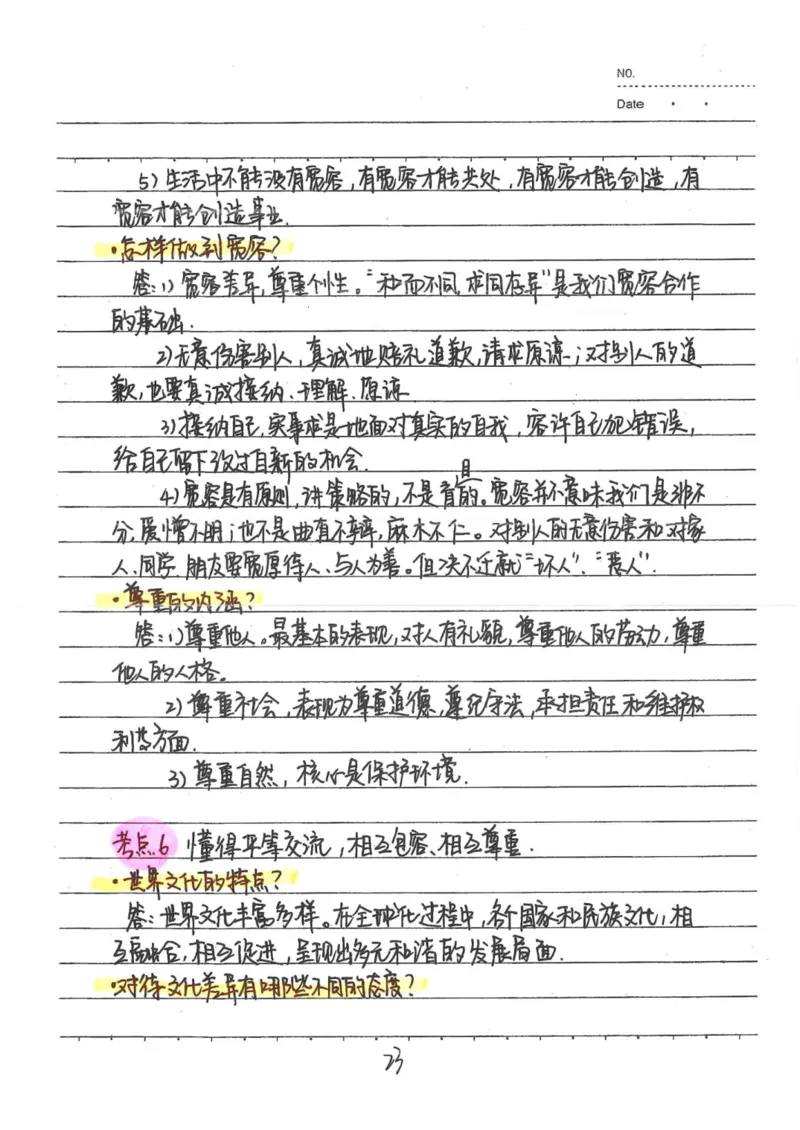 NO.
Date
5）生活中不能没有宽容，有宽容才能共处，有宽容才能创造，有
宽容才能创造事业.
·怎样做到宽容？
答：1）宽容差异，尊重个性。“和而不同，求同存异”是我们宽容合作
的基础.
2）无意伤害别人，真诚地赔礼道歉，请求原谅；对别人的道
歉，也要真诚接纳、理解、原谅.
3）接纳自己，实事求是地面对真实的自我，容许自己犯错误，
给自己留下改过自新的机会.
4）宽容是有原则，讲策略的，不是盲目的。宽容并不意味我们是非不
分，爱憎不明；也不是曲直不辨，麻木不仁。对别人的无意伤害和对家
人、同学、朋友要宽厚待人、与人为善。但决不迁就“坏人”、“恶人”.
·尊重的内涵？
答：1）尊重他人。最基本的表现，对人有礼貌，尊重他人的劳动，尊重
他人的人格。
2）尊重社会，表现为尊重道德，遵纪守法，承担责任和维护权
利等方面.
3）尊重自然，核心是保护环境.
考点6 懂得平等交流，相互包容、相互尊重.
·世界文化的特点？
答：世界文化丰富多样。在全球化过程中，各个国家和民族文化，相
互融合，相互促进，呈现出多元和谐的发展局面.
·对待文化差异有哪些不同的态度？
23